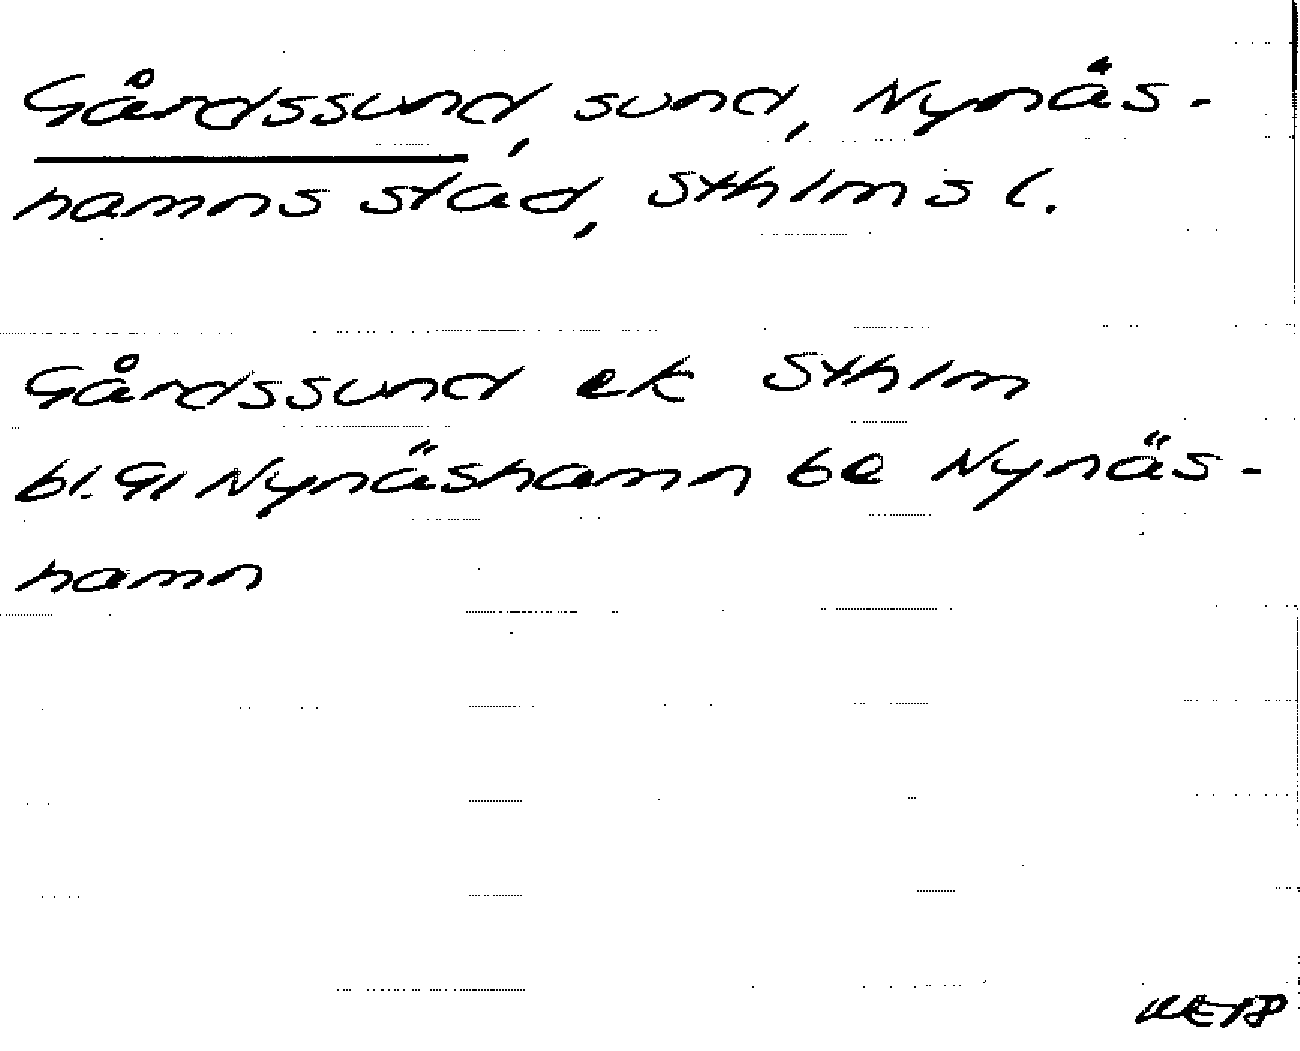 Gårdssund, sund, Nynäs-
hamns stad, Sthlms l.
Gårdssund ek Sthlm
bl. 91 Nynäshamn be Nynäs-
hamn